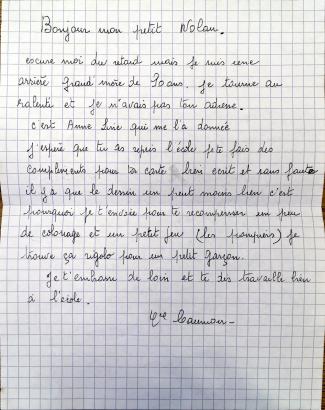 Bonjour mon petit Nolan.
escuse moi du retard mais je suis une
arrière grand mère de 90 ans. je tourne au
ralenti et je n'avais pas ton adresse.
c'est Anne Lise qui me l'a donnée
j'espère que tu as repris l'école je te fais des
compliments pour ta carte bien écrit et sans faute
il y a que le dessin un peut moins bien c'est
pourquoi je t'envoie pour te recompenser un peu
de coloriage et un petit jeu (les pompiers) je
trouve ça rigolo pour un petit garçon.
je t'embrasse de loin et te dis travaille bien
à l'école.